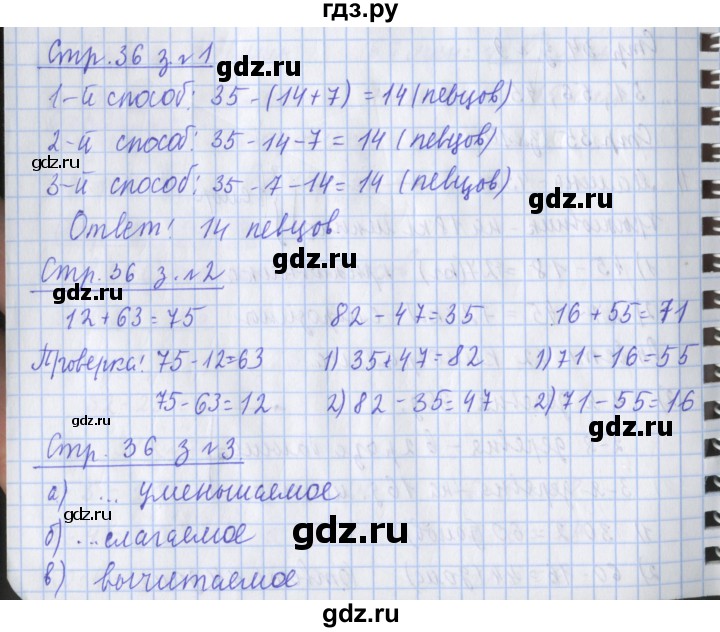 гдз.ру
Стр. 36 з. №1
gdz.ru
1-й способ: 35 - (14+7) = 14 (певцов)
2-й способ: 35 - 14 - 7 = 14 (певцов)
gdz.ru
3-й способ: 35 - 7 - 14 = 14 (певцов)
gdz.ru
Ответ! 14 певцов
gdz.ru
Стр. 36 з. №2
gdz.ru
12 + 63 = 75 82 - 47 = 35 16 + 55 = 71
Проверка! 75 - 12 = 63 1) 35 + 47 = 82 1) 71 - 16 = 55
75 - 63 = 12 2) 82 - 35 = 47 2) 71 - 55 = 16
gdz.ru
gdz.ru
Стр. 36 з №3.
а) ... уменьшаемое
gdz.ru
gdz.ru
б) ... слагаемое
в) вычитаемое
gdz.ru